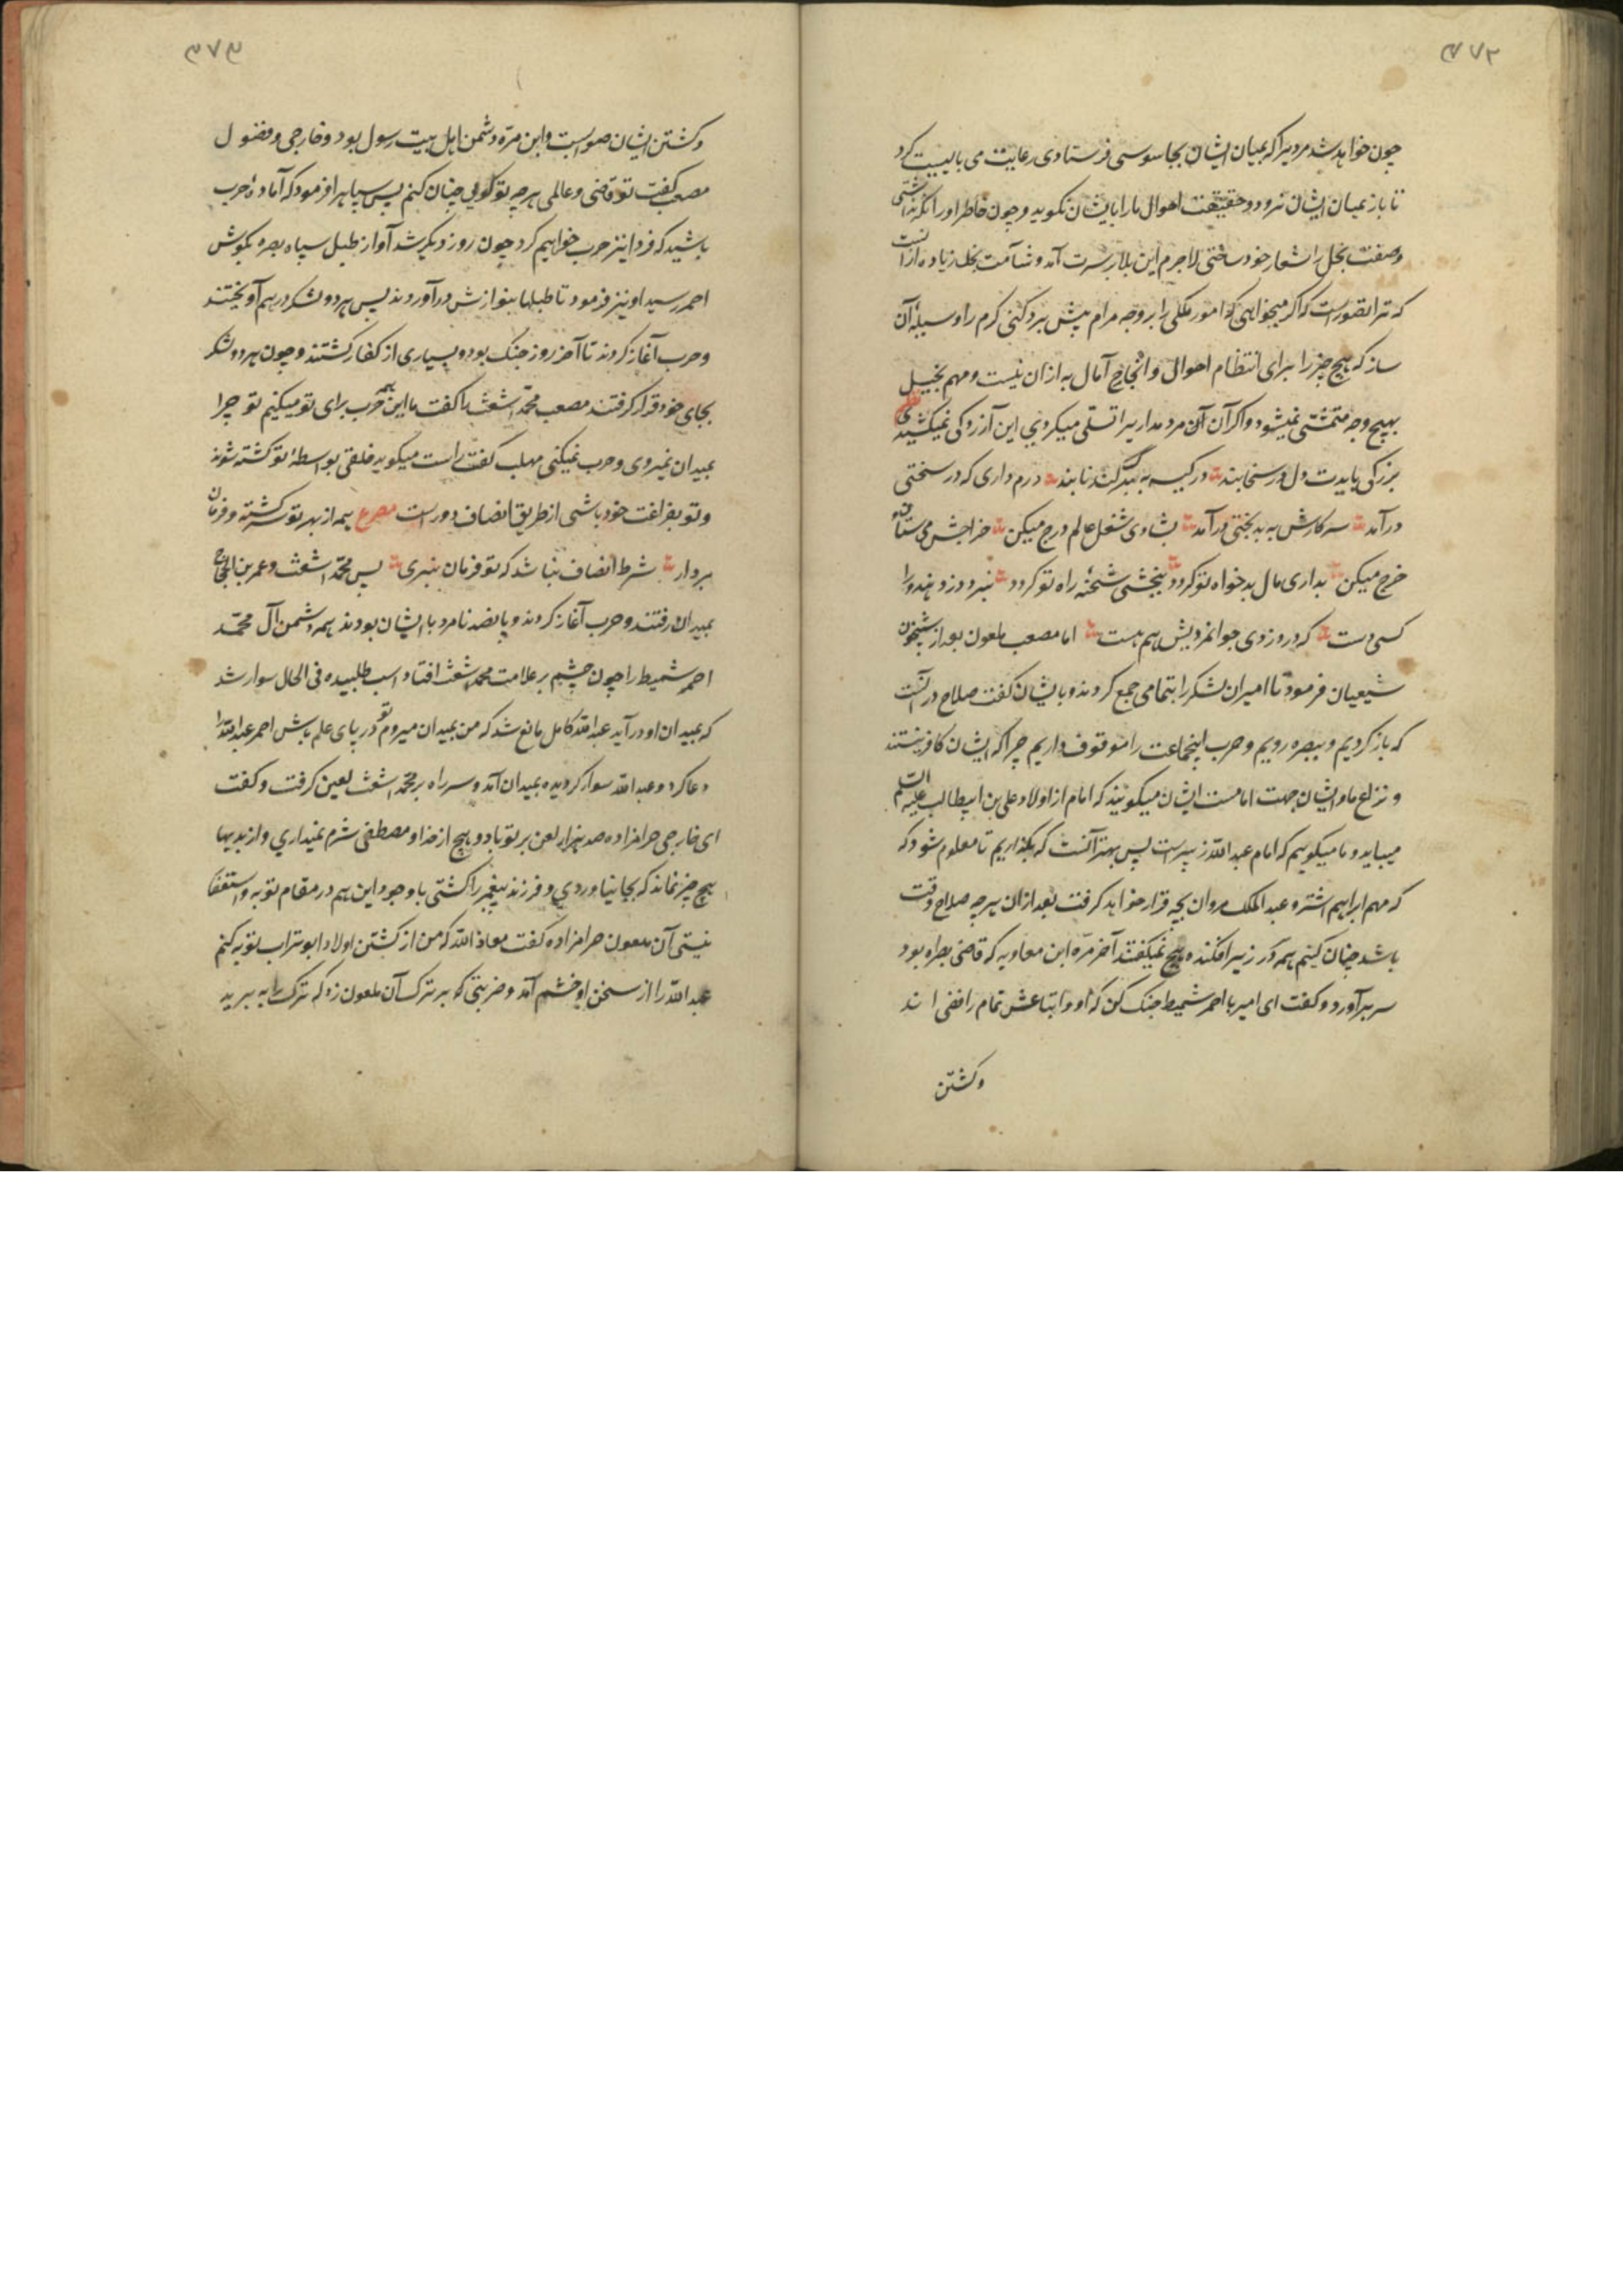 ۳۷۲
چون خواهد شد مردیرا که بمیان ایشان بجاسوسی فرستادی رعایت می بایست کرد
تا باز بمیان ایشان نرود و حقیقت احوال ما را بایشان نگوید و چون خاطر او را نگه نداشتی
و صفت بخل را شعار خود ساختی لاجرم این بلا بر سرت آمد و شآمت بخل زیاده از آنست
که ترا تصورست که اگر میخواهی که امور ملکی را بر وجه مرام پیش برد کنی کرم را وسیلهٔ آن
ساز که هیچ چیز را برای انتظام احوال و انجاح آمال به ازان نیست و مهم بخیل
بهیچ وجه متمشی نمیشود و اگر آن مرد مدایریرا تسلی میکردی این آزردگی نمیکشیدی نظم
بزرگی بایدت دل در سخا بند در کیسه به بند گندنا بند درم داری که در سختی
درآمد سر کارش به بدبختی درآمد بشادی شغل عالم درج میکن خراجش می ستان و
خرج میکن بداری مال بدخواه تو گردد ببخشی شحنهٔ راه تو گردد نبرد دزد هندو را
کسی دست که در دزدی جوانمردیش هم هست اما مصعب ملعون بعد از شبیخون
شیعیان فرمود تا امیران لشکر را بتمامی جمع کردند و بایشان گفت صلاح در آنست
که باز گردیم و ببصره رویم و حرب اینجماعت را موقوف داریم چرا که ایشان کافر نیستند
و نزاع ما و ایشان جهت امامست ایشان میگویند که امام از اولاد علی بن ابیطالب علیه السلم
میباید و ما میگویم که امام عبد الله زبیرست پس بهتر آنست که بگذاریم تا معلوم شود که
که مهم ابراهیم اشتر و عبد الملک مروان بچه قرار خواهد گرفت بعد ازان هر چه صلاح وقت
باشد چنان کنیم همه سر در زیر افکنده هیچ نمیگفتند آخر مرّه ابن معاویه که قاضی بصره بود
سر برآورد و گفت ای امیر با احمر شمیط جنگ کن که او و اتباعش تمام رافضی اند
و کشتن
۳۷۳
و کشتن ایشان صوابست و ابن مرّه دشمن اهل بیت رسول بود و خارجی و فضول
مصعب گفت تو قاضی و عالمی هر چه تو گویی چنان کنم پس سپاهرا فرمود که آمادهٔ حرب
باشید که فردا نیز حرب خواهیم کرد چون روز دیگر شد آواز طبل سپاه بصره بگوش
احمر رسید او نیز فرمود تا طبلها بنوازش درآوردند پس هر دو لشکر در هم آویختند
و حرب آغاز کردند تا آخر روز جنگ بود و بسیاری از کفار کشتند و چون هر دو لشکر
بجای خود قرار گرفتند مصعب محمد اشعث را گفت ما این همه حرب برای تو میکنیم تو چرا
بمیدان نمیروی و حرب نمیکنی مهلب گفت راست میگوید خلقی بواسطهٔ تو کشته شوند
و تو بفراغت خود باشی از طریق انصاف دورست مصرع همه از بهر تو سرگشته و فرمان
بردار شرط انصاف نباشد که تو فرمان نبری پس محمد اشعث و عمر بن الحجاج
بمیدان رفتند و حرب آغاز کردند و پانصد نامرد با ایشان بودند همه دشمن آل محمد
احمر شمیط را چون چشم بر علامت محمد اشعث افتاد اسب طلبیده فی الحال سوار شد
که بمیدان او درآید عبد الله کامل مانع شد که من بمیدان میروم تو در پای علم باش احمر عبد الله را
دعا کرد و عبد الله سوار گردیده بمیدان آمد و سر راه بر محمد اشعث لعین گرفت و گفت
ای خارجی حرامزاده صد هزار لعن بر تو باد و هیچ از خدا و مصطفی شرم نمیداری و از بدیها
هیچ چیز نماند که بجا نیاوردی و فرزند پیغمبر را کشتی با وجود این هم در مقام توبه و استغفار
نیستی آن ملعون حرامزاده گفت معاذ الله که من از کشتن اولاد ابو تراب توبه کنم
عبد الله را از سخن او خشم آمد و ضربتی که بر ترک آن ملعون زد که ترک را به برید